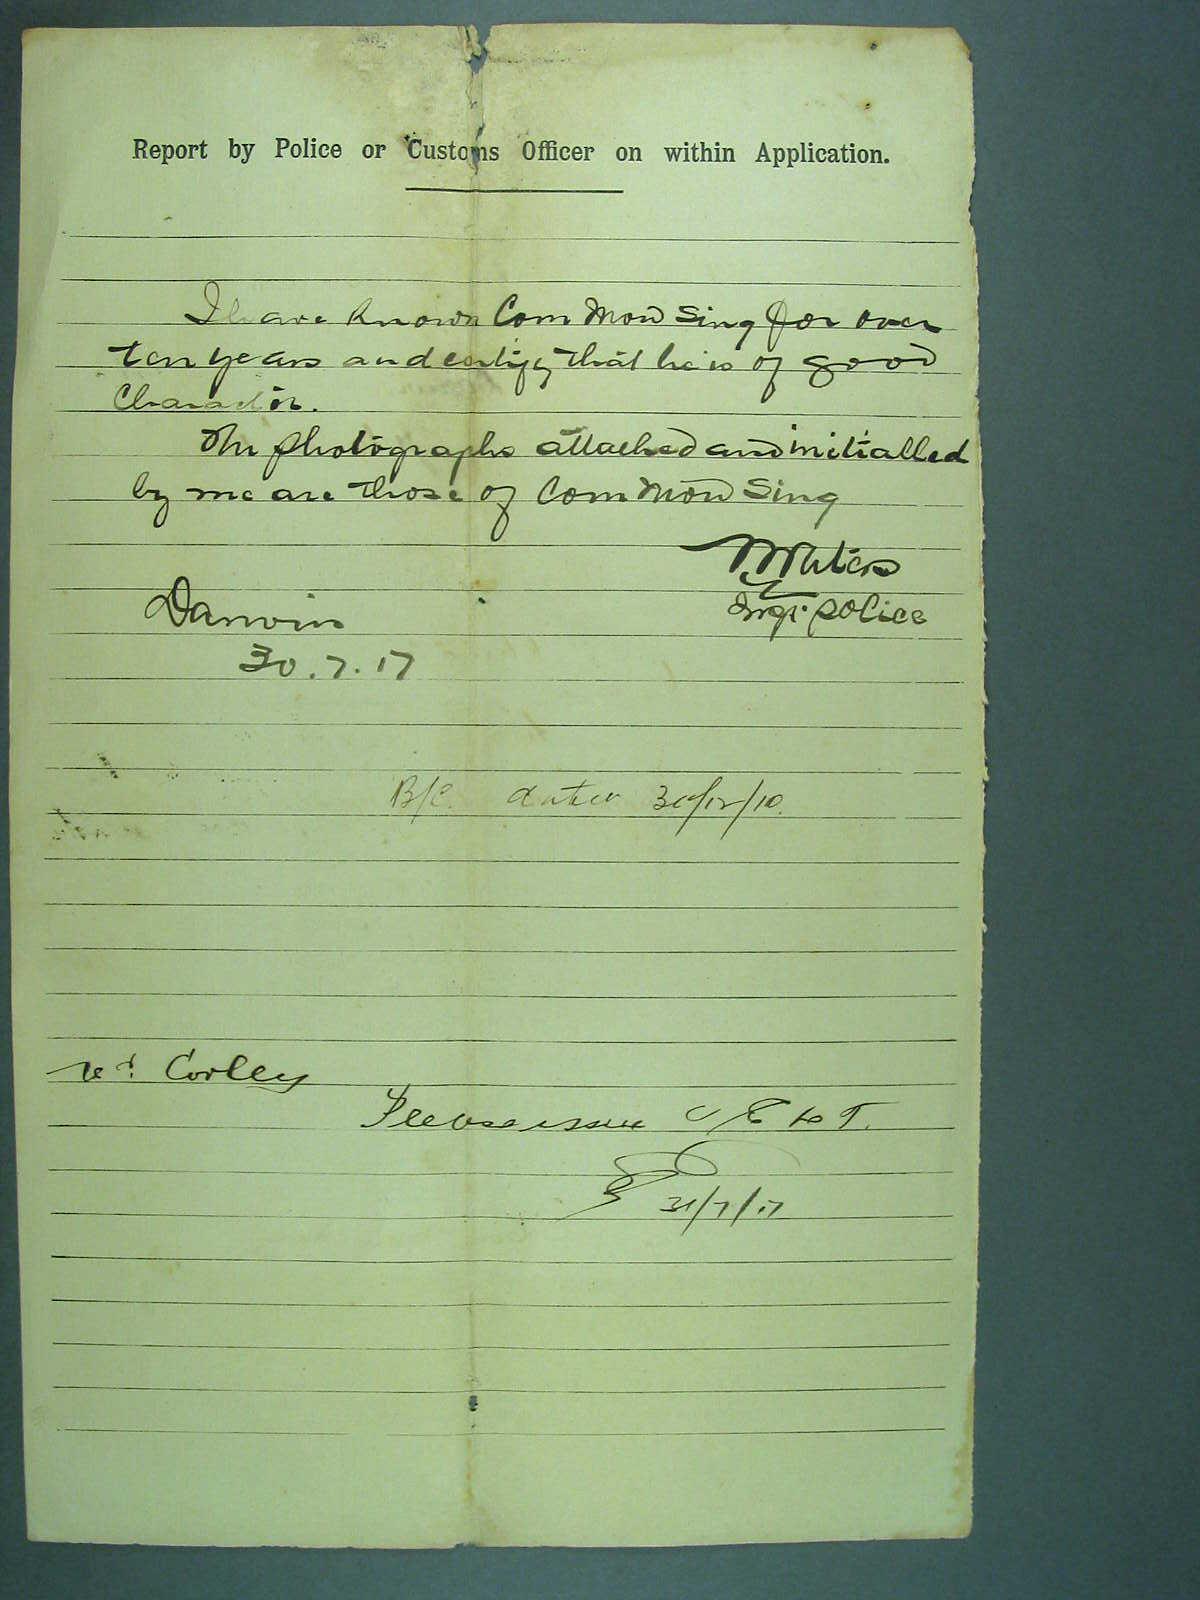 Report by Police or Customs Officer on within Application.
I have known Com Mon Sing for over
ten years and certify that he is of good
Character.
The photographs attached and initialled
by me are those of Com Mon Sing
Waters
Insp. Police
Darwin
30.7.17
B/C dated 30/12/10.
Mr Corley
Please issue CEDT.
31/7/17